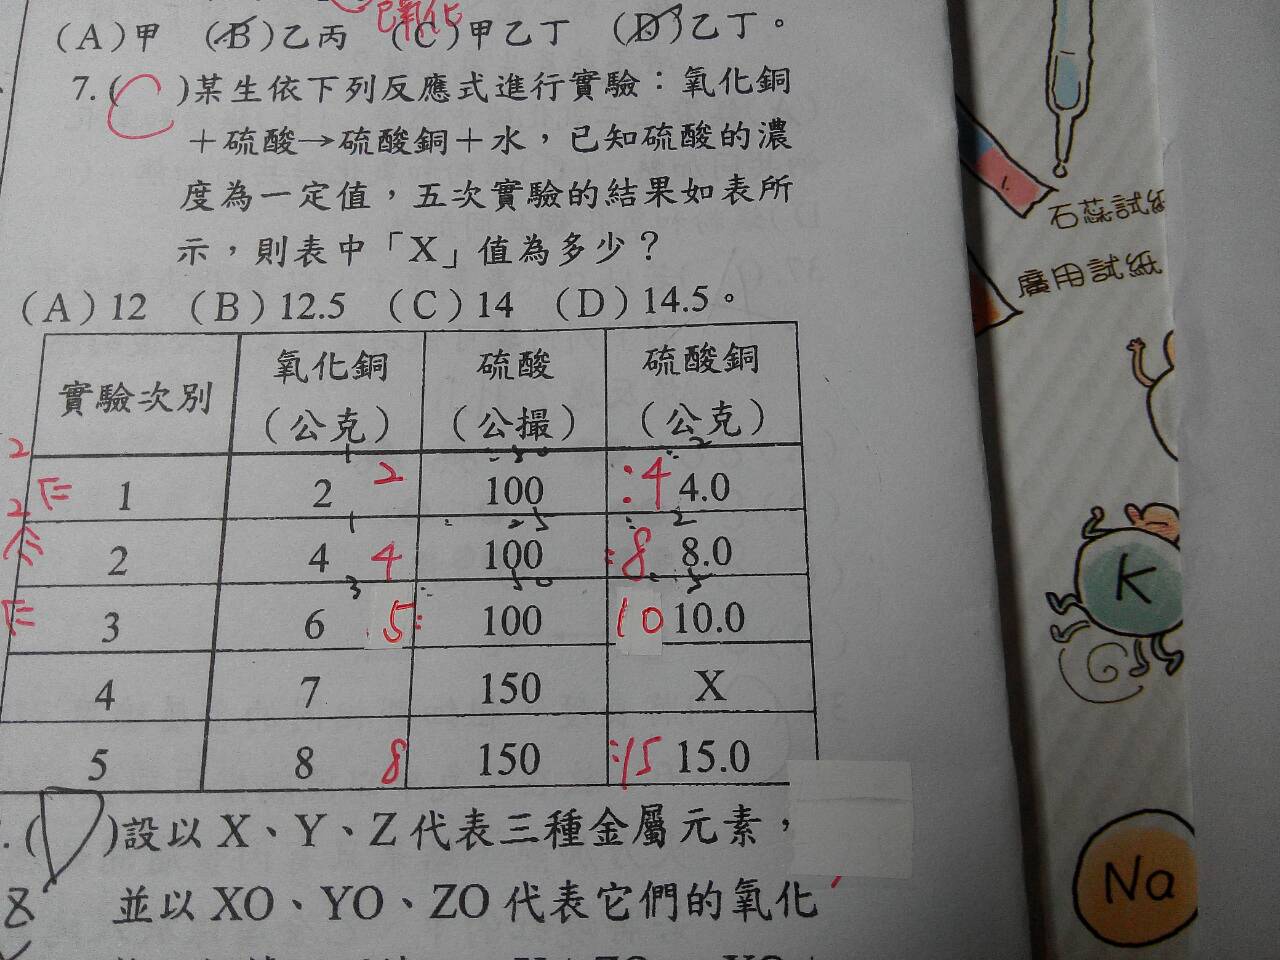 已氧化
(A)甲 (B)乙丙 (C)甲乙丁 (D)乙丁。
7.(C)某生依下列反應式進行實驗：氧化銅
＋硫酸→硫酸銅＋水，已知硫酸的濃
度為一定值，五次實驗的結果如表所
示，則表中「X」值為多少？
(A)12 (B)12.5 (C)14 (D)14.5。
實驗次別 氧化銅（公克） 硫酸（公撮） 硫酸銅（公克）
1 2 2 100 :4 4.0
2 4 4 100 :8 8.0
3 6 5: 100 10 10.0
4 7 150 X
5 8 8 150 :15 15.0
( )設以 X、Y、Z 代表三種金屬元素，
並以 XO、YO、ZO 代表它們的氧化
8
石蕊試紙
廣用試紙
K
Na